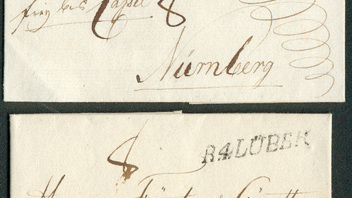 frey bis Cassel 8
Nürnberg
8
R4LÜBEK